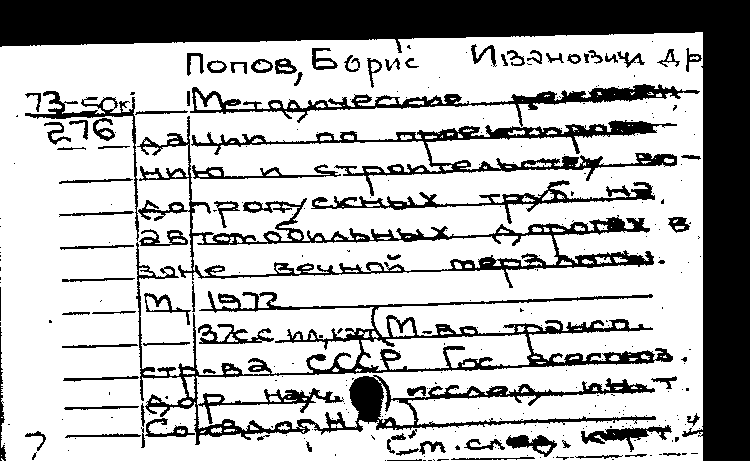 Попов, Борис Иванович и др.
73-50к Методические рекомен-
276 дации по проектирова-
нию и строительству во-
допропускных труб на
автомобильных дорогах в
зоне вечной мерзлоты.
М., 1972
37с. с ил., карт. (М-во трансп.
стр-ва СССР. Гос. всесоюз.
дор. науч. исслед. ин-т.
Союздорнии)
См. след. карт.
7